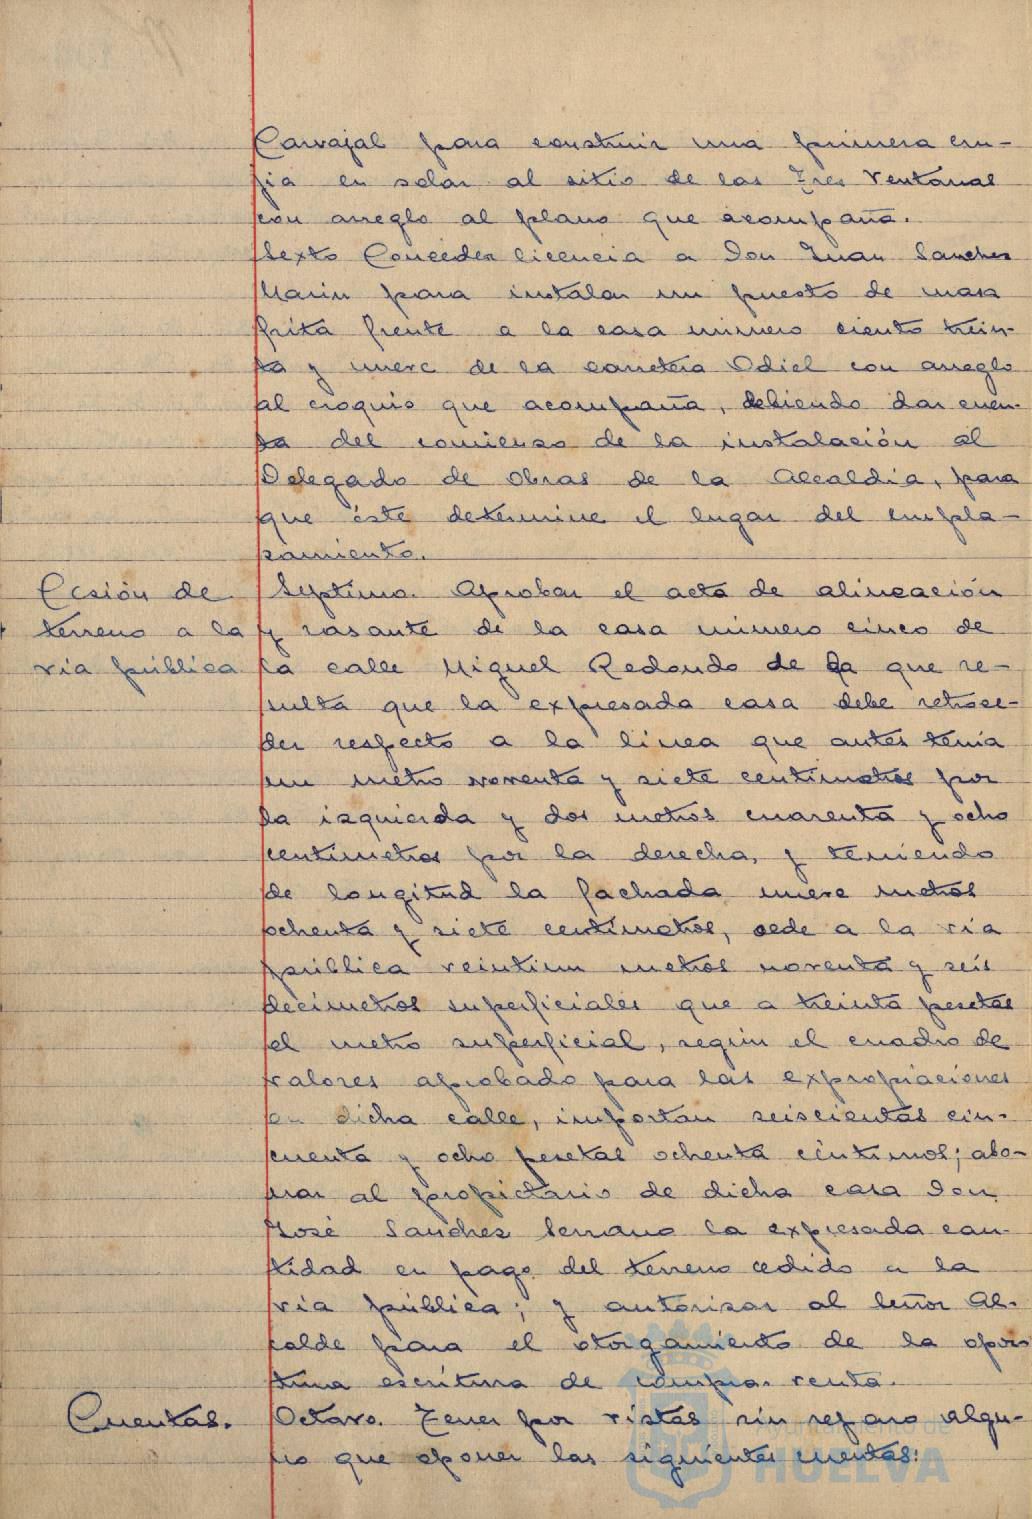 Carvajal para construir una primera cru-
jia en solar al sitio de las Tres Ventanas
con arreglo al plano que acompaña.
Sexto Conceder licencia a Don Juan Sanchez
Marin para instalar un puesto de masa
frita frente a la casa número ciento trein-
ta y nueve de la carretera Odiel con arreglo
al croquis que acompaña, debiendo dar cuen-
ta del comienzo de la instalación al
Delegado de Obras de la Alcaldía, para
que éste determine el lugar del empla-
zamiento.
Cesión de terreno a la vía pública
Septimo. Aprobar el acta de alineación
y rasante de la casa número cinco de
la calle Miguel Redondo de la que re-
sulta que la expresada casa debe retroce-
der respecto a la línea que antes tenía
un metro noventa y siete centimetros por
la izquierda y dos metros cuarenta y ocho
centimetros por la derecha, y teniendo
de longitud la fachada nueve metros
ochenta y siete centimetros, cede a la vía
pública veintiun metros noventa y seis
decimetros superficiales que a treinta pesetas
el metro superficial, según el cuadro de
valores aprobado para las expropiaciones
en dicha calle, importan seiscientas cin-
cuenta y ocho pesetas ochenta céntimos; abo-
nar al propietario de dicha casa Don
José Sanchez Serrano la expresada can-
tidad en pago del terreno cedido a la
vía pública; y autorizar al Señor Al-
calde para el otorgamiento de la opor-
tuna escritura de compra-venta.
Cuentas.
Octavo. Tener por vistas sin reparo algu-
no que oponer las siguientes cuentas:
Ayuntamiento de
HUELVA